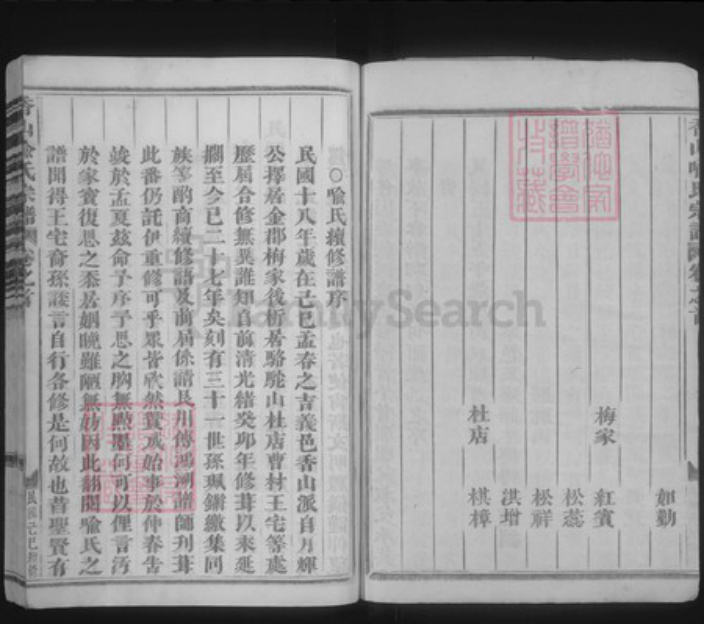 如勤
梅家 紅賓
松蕊
松祥
洪增
杜店 棋樟
香山喻氏宗譜 卷之首
○喻氏續修譜序
民國十八年歲在己巳孟春之吉義邑香山派自月輝
公擇居金郡梅家後析居駱駝山杜店曹村王宅等處
歷屆合修無異誰知自前清光緒癸卯年修葺以來延
擱至今已二十七年矣刻有三十一世孫珮鏘繳集同
族等酌商續修譜及前屆係請長川傅鴻洲譜師刊葺
此番仍託伊重修可乎眾皆欣然贊成始事於仲春告
竣於孟夏茲命予序予思之胸無點墨何可以俚言污
於家賓復思之忝居姻晚雖陋無妨因此翻閱喻氏之
譜聞得王宅裔孫議言自行各修是何故也昔聖賢有
香山喻氏宗譜 卷之首
民國己巳增修
FamilySearch